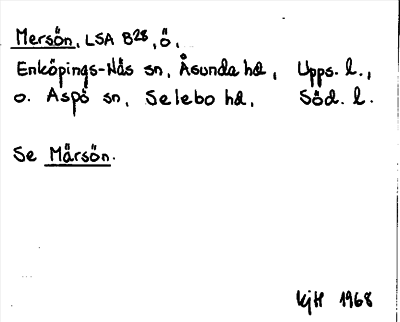 Mersön, LSA B28, ö,
Enköpings-Näs sn, Åsunda hd, Upps. l.,
o. Aspö sn, Selebo hd, Söd. l.
Se Märsön.
kjH 1968